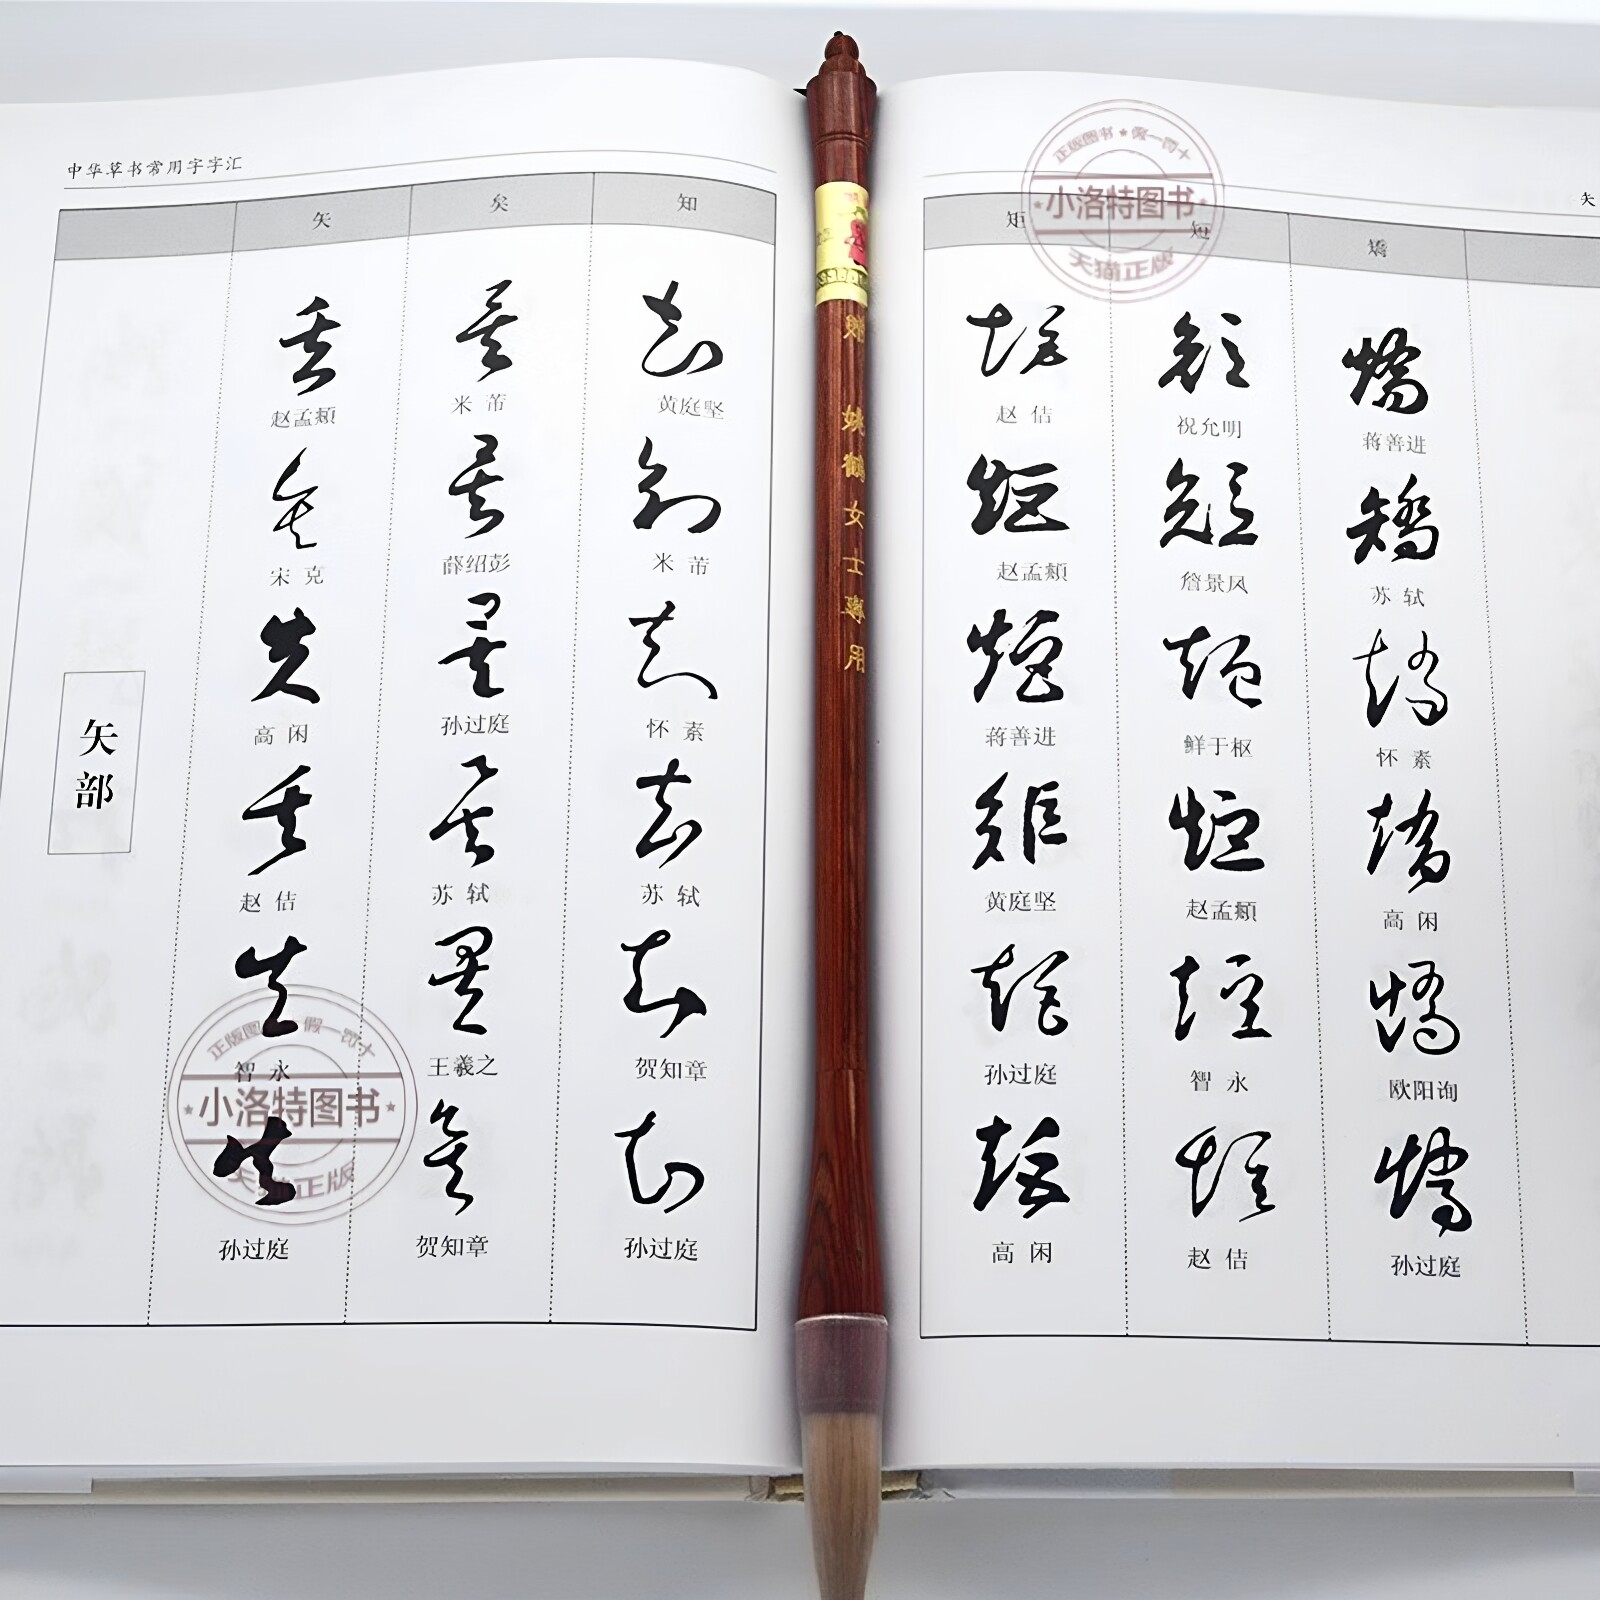 中华草书常用字字汇
矢
矣
知
矢部
赵孟頫
宋克
高闲
赵佶
智永
孙过庭
米芾
薛绍彭
孙过庭
苏轼
王羲之
贺知章
黄庭坚
米芾
怀素
苏轼
贺知章
孙过庭
赠 姚鹤女士專用
矢
矩
短
矯
赵佶
赵孟頫
蒋善进
黄庭坚
孙过庭
高闲
祝允明
詹景凤
鲜于枢
赵孟頫
智永
赵佶
蒋善进
苏轼
怀素
高闲
欧阳询
孙过庭
正版图书★假一罚十
★小洛特图书★
天猫正版
正版图书★假一罚十
★小洛特图书★
天猫正版